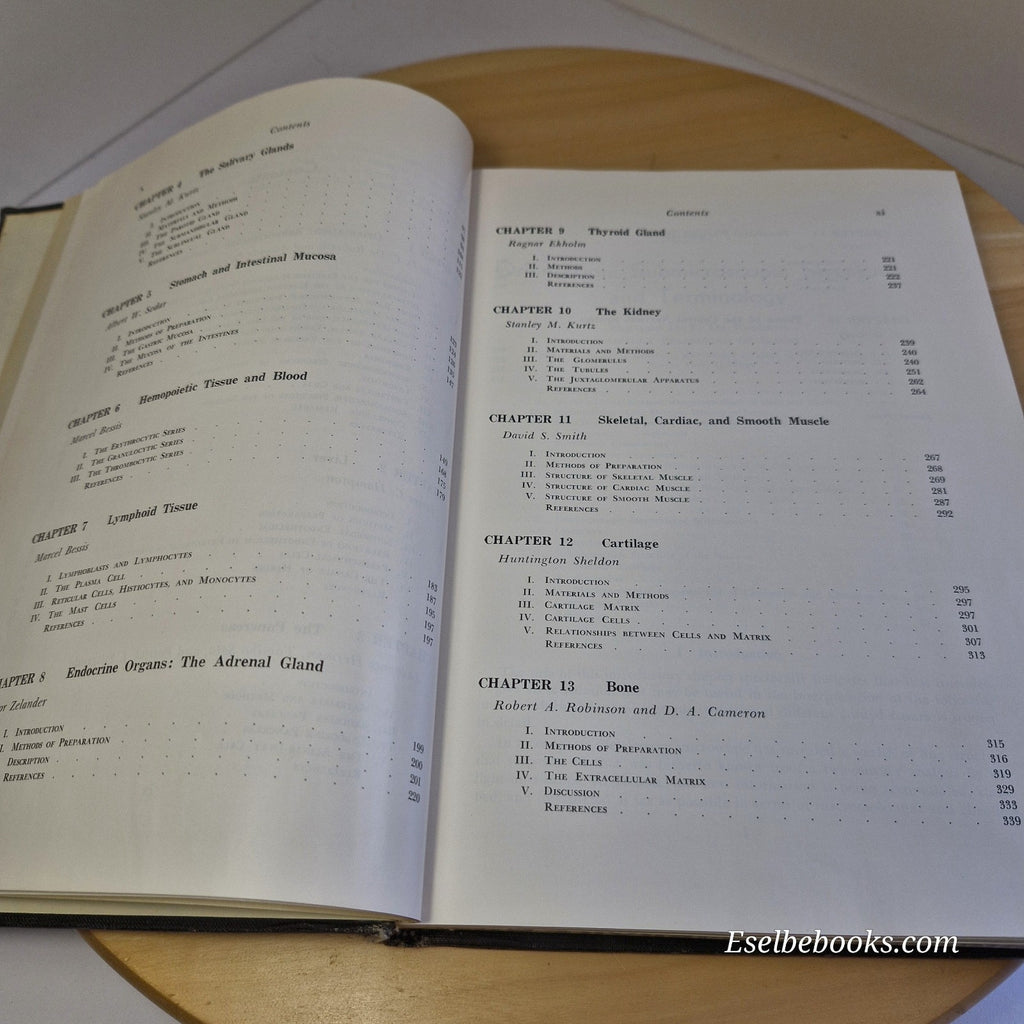 Contents
x
CHAPTER 4 The Salivary Glands
Stanley M. Kurtz
I. Introduction
II. Materials and Methods
III. The Parotid Gland
IV. The Submandibular Gland
V. The Sublingual Gland
References
CHAPTER 5 Stomach and Intestinal Mucosa
Albert W. Sedar
I. Introduction
II. Methods of Preparation
III. The Gastric Mucosa
IV. The Mucosa of the Intestines
References 147
CHAPTER 6 Hemopoietic Tissue and Blood
Marcel Bessis
I. The Erythrocytic Series 149
II. The Granulocytic Series 168
III. The Thrombocytic Series 175
References 179
CHAPTER 7 Lymphoid Tissue
Marcel Bessis
I. Lymphoblasts and Lymphocytes 183
II. The Plasma Cell 187
III. Reticular Cells, Histiocytes, and Monocytes 195
IV. The Mast Cells 197
References 197
APTER 8 Endocrine Organs: The Adrenal Gland
or Zelander
I. Introduction 199
I. Methods of Preparation 200
Description 201
References 220
Contents xi
CHAPTER 9 Thyroid Gland
Ragnar Ekholm
I. Introduction 221
II. Methods 221
III. Description 222
References 237
CHAPTER 10 The Kidney
Stanley M. Kurtz
I. Introduction 239
II. Materials and Methods 240
III. The Glomerulus 240
IV. The Tubules 251
V. The Juxtaglomerular Apparatus 262
References 264
CHAPTER 11 Skeletal, Cardiac, and Smooth Muscle
David S. Smith
I. Introduction 267
II. Methods of Preparation 268
III. Structure of Skeletal Muscle 269
IV. Structure of Cardiac Muscle 281
V. Structure of Smooth Muscle 287
References 292
CHAPTER 12 Cartilage
Huntington Sheldon
I. Introduction 295
II. Materials and Methods 297
III. Cartilage Matrix 297
IV. Cartilage Cells 301
V. Relationships between Cells and Matrix 307
References 313
CHAPTER 13 Bone
Robert A. Robinson and D. A. Cameron
I. Introduction 315
II. Methods of Preparation 316
III. The Cells 319
IV. The Extracellular Matrix 329
V. Discussion 333
References 339
Eselbebooks.com